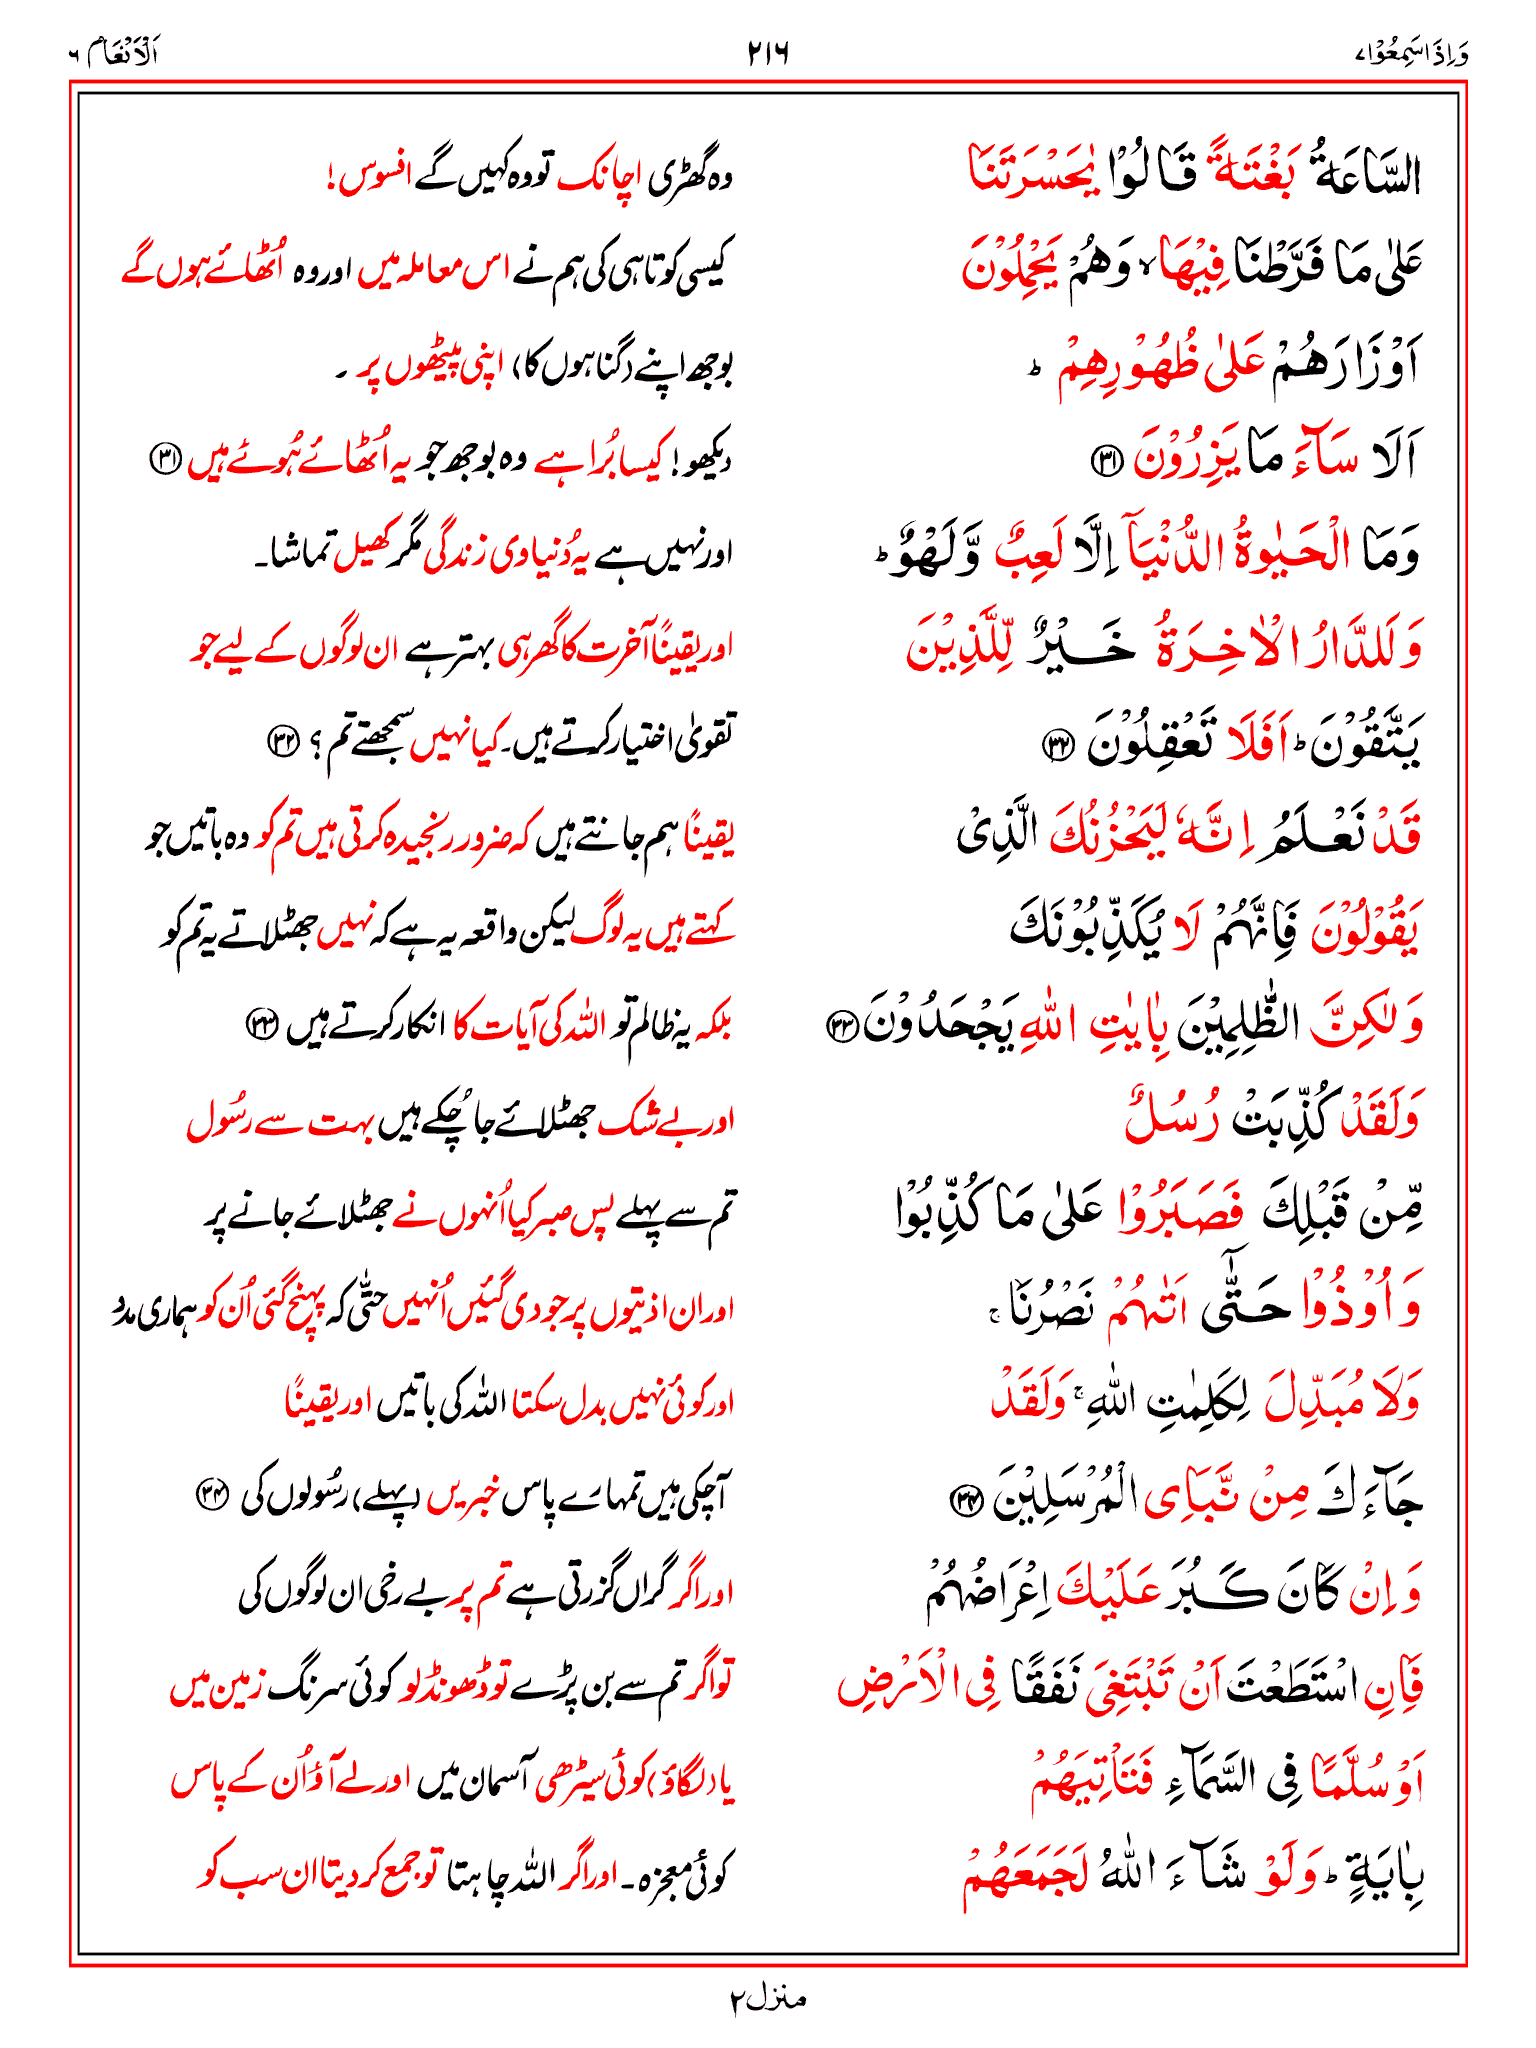 وَاِذَاسَمِعُوْا۷ ۲۱۶ اَلْاَنْعَام ۶
السَّاعَةُ بَغْتَةً قَالُوْا يٰحَسْرَتَنَا وہ گھڑی اچانک تو وہ کہیں گے افسوس!
عَلٰى مَا فَرَّطْنَا فِيْهَا ۙ وَهُمْ يَحْمِلُوْنَ کیسی کوتاہی کی ہم نے اس معاملہ میں اور وہ اُٹھائے ہوں گے
اَوْزَارَهُمْ عَلٰى ظُهُوْرِهِمْ ؕ بوجھ اپنے (گناہوں کا) اپنی پیٹھوں پر ۔
اَلَا سَآءَ مَا يَزِرُوْنَ ﴿۳۱﴾ دیکھو! کیسا بُرا ہے وہ بوجھ جو یہ اُٹھائے ہُوئے ہیں ﴿۳۱﴾
وَمَا الْحَيٰوةُ الدُّنْيَاۤ اِلَّا لَعِبٌ وَّلَهْوٌ ؕ اور نہیں ہے یہ دُنیاوی زندگی مگر کھیل تماشا۔
وَلَلدَّارُ الْاٰخِرَةُ خَيْرٌ لِّلَّذِيْنَ اور یقینًا آخرت کا گھر ہی بہتر ہے ان لوگوں کے لیے جو
يَتَّقُوْنَ ؕ اَفَلَا تَعْقِلُوْنَ ﴿۳۲﴾ تقوٰی اختیار کرتے ہیں۔ کیا نہیں سمجھتے تم ؟ ﴿۳۲﴾
قَدْ نَعْلَمُ اِنَّهٗ لَيَحْزُنُكَ الَّذِىْ یقینًا ہم جانتے ہیں کہ ضرور رنجیدہ کرتی ہیں تم کو وہ باتیں جو
يَقُوْلُوْنَ فَاِنَّهُمْ لَا يُكَذِّبُوْنَكَ کہتے ہیں یہ لوگ لیکن واقعہ یہ ہے کہ نہیں جھٹلاتے یہ تم کو
وَلٰكِنَّ الظّٰلِمِيْنَ بِاٰيٰتِ اللّٰهِ يَجْحَدُوْنَ ﴿۳۳﴾ بلکہ یہ ظالم تو اللہ کی آیات کا انکار کرتے ہیں ﴿۳۳﴾
وَلَقَدْ كُذِّبَتْ رُسُلٌ اور بے شک جھٹلائے جا چُکے ہیں بہت سے رسُول
مِّنْ قَبْلِكَ فَصَبَرُوْا عَلٰى مَا كُذِّبُوْا تم سے پہلے پس صبر کیا اُنہوں نے جھٹلائے جانے پر
وَاُوْذُوْا حَتّٰٓى اَتٰىهُمْ نَصْرُنَا ۚ اور ان اذیتوں پر جو دی گئیں اُنہیں حتّٰی کہ پہنچ گئی اُن کو ہماری مدد
وَلَا مُبَدِّلَ لِكَلِمٰتِ اللّٰهِ ۚ وَلَقَدْ اور کوئی نہیں بدل سکتا اللہ کی باتیں اور یقینًا
جَآءَكَ مِنْ نَّبَاِى الْمُرْسَلِيْنَ ﴿۳۴﴾ آچکی ہیں تمہارے پاس خبریں (پہلے) رسُولوں کی ﴿۳۴﴾
وَاِنْ كَانَ كَبُرَ عَلَيْكَ اِعْرَاضُهُمْ اور اگر گراں گزرتی ہے تم پر بے رخی ان لوگوں کی
فَاِنِ اسْتَطَعْتَ اَنْ تَبْتَغِىَ نَفَقًا فِى الْاَرْضِ تو اگر تم سے بن پڑے تو ڈھونڈ لو کوئی سرنگ زمین میں
اَوْ سُلَّمًا فِى السَّمَآءِ فَتَاْتِيَهُمْ یا (لگاؤ) کوئی سیڑھی آسمان میں اور لے آؤ اُن کے پاس
بِاٰيَةٍ ؕ وَلَوْ شَآءَ اللّٰهُ لَجَمَعَهُمْ کوئی معجزہ۔ اور اگر اللہ چاہتا تو جمع کر دیتا ان سب کو
منزل۲